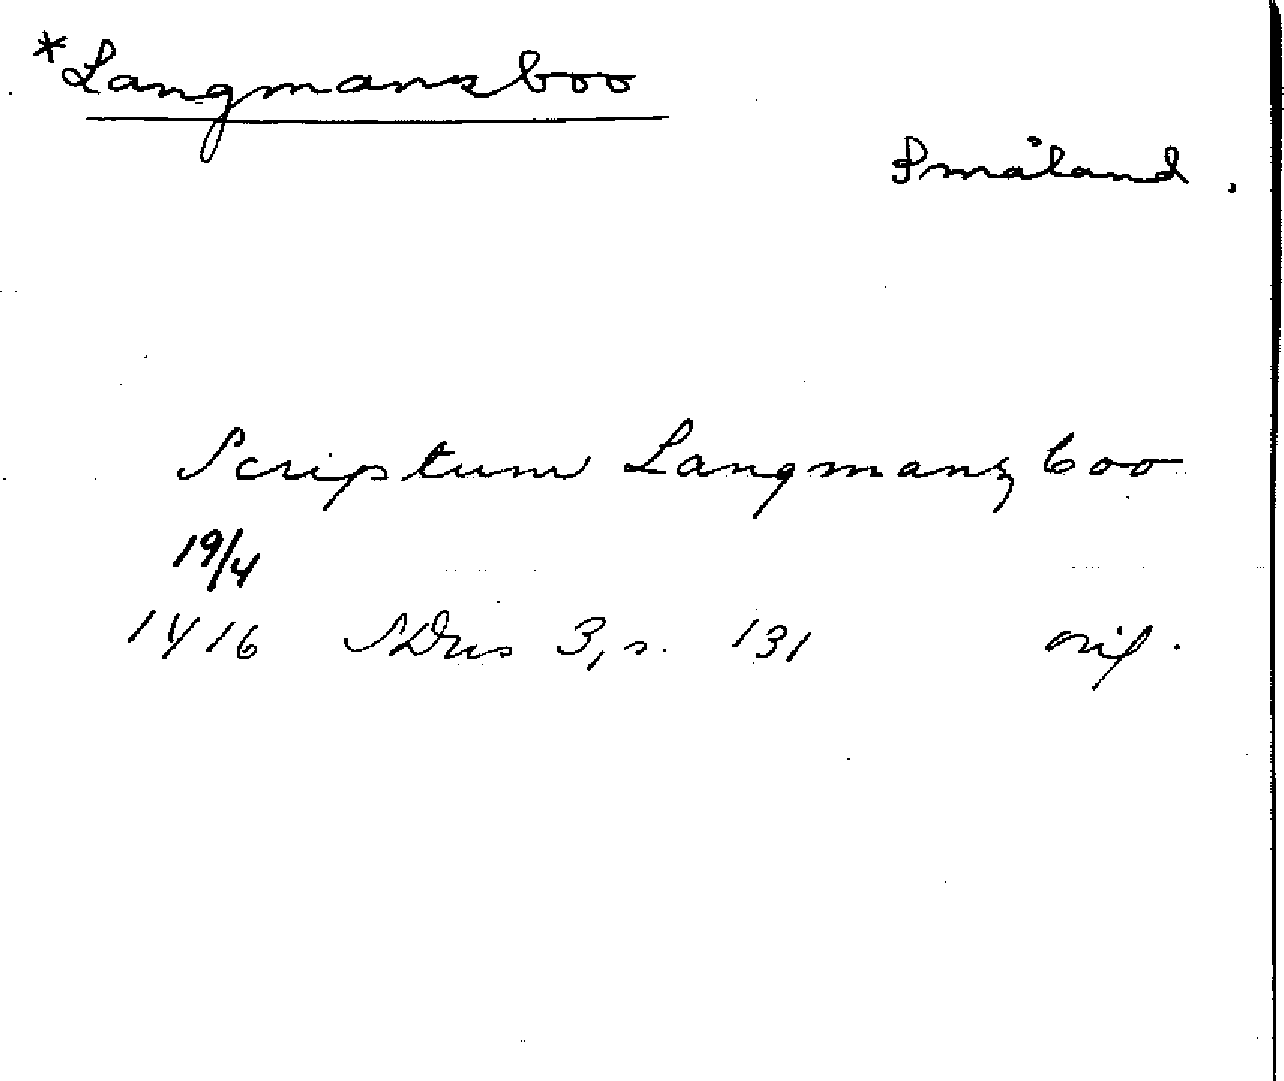 *Langmansboo
Småland.
Scriptum Langmanz boo
19/4
1416 SDns 3, s. 131 orig.